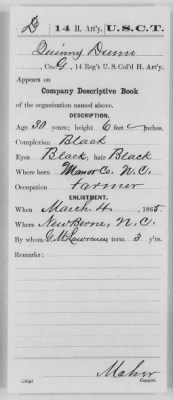 D 14 H. Art'y. U.S.C.T.
Quinny Dunn
, Co. G, 14 Reg't U. S. Col'd H. Art'y.
Appears on
Company Descriptive Book
of the organization named above.
DESCRIPTION.
Age 30 years; height 6 feet inches.
Complexion Black
Eyes Black; hair Black
Where born Manor Co. N. C.
Occupation farmer
ENLISTMENT.
When March 4, 1865.
Where New Berne, N. C.
By whom G. McLawrence term 3 y'rs.
Remarks:
Maher
Copyist.